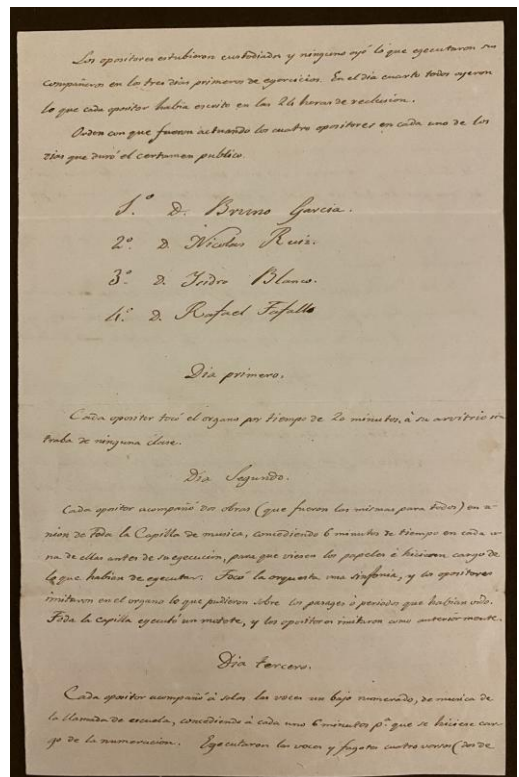 Los opositores estubieron custodiados y ninguno oyó lo que egecutaron sus
compañeros en los tres dias primeros de egercicios. En el dia cuarto todos oyeron
lo que cada opositor habia escrito en las 24 horas de reclusion.
Orden con que fueron actuando los cuatro opositores en cada uno de los
dias que duró el certamen publico.
1.º D. Bruno Garcia.
2º D. Nicolas Ruiz.
3º D. Isidro Blanco.
4.º D. Rafael Tafallo
Dia primero.
Cada opositor tocó el organo por tiempo de 20 minutos, á su arvitrio sin
traba de ninguna clase.
Dia Segundo.
Cada opositor acompañó dos obras (que fueron las mismas para todos) en u-
nion de toda la Capilla de musica, concediendo 6 minutos de tiempo en cada u-
na de ellas antes de su egecucion, para que viesen los papeles é hiciesen cargo de
lo que habian de egecutar. Tocó la orquesta una sinfonia, y los opositores
imitaron en el organo lo que pudieron sobre los parages ó periodos que habian oido.
Toda la capilla egecutó un motete, y los opositores imitaron como anteriormente.
Dia tercero.
Cada opositor acompañó á solas las voces un bajo numerado, de musica de
la llamada de escuela, concediendo á cada uno 6 minutos pª que se hiciese car-
go de la numeracion. Egecutaron las voces y fagotes cuatro versos (dos de